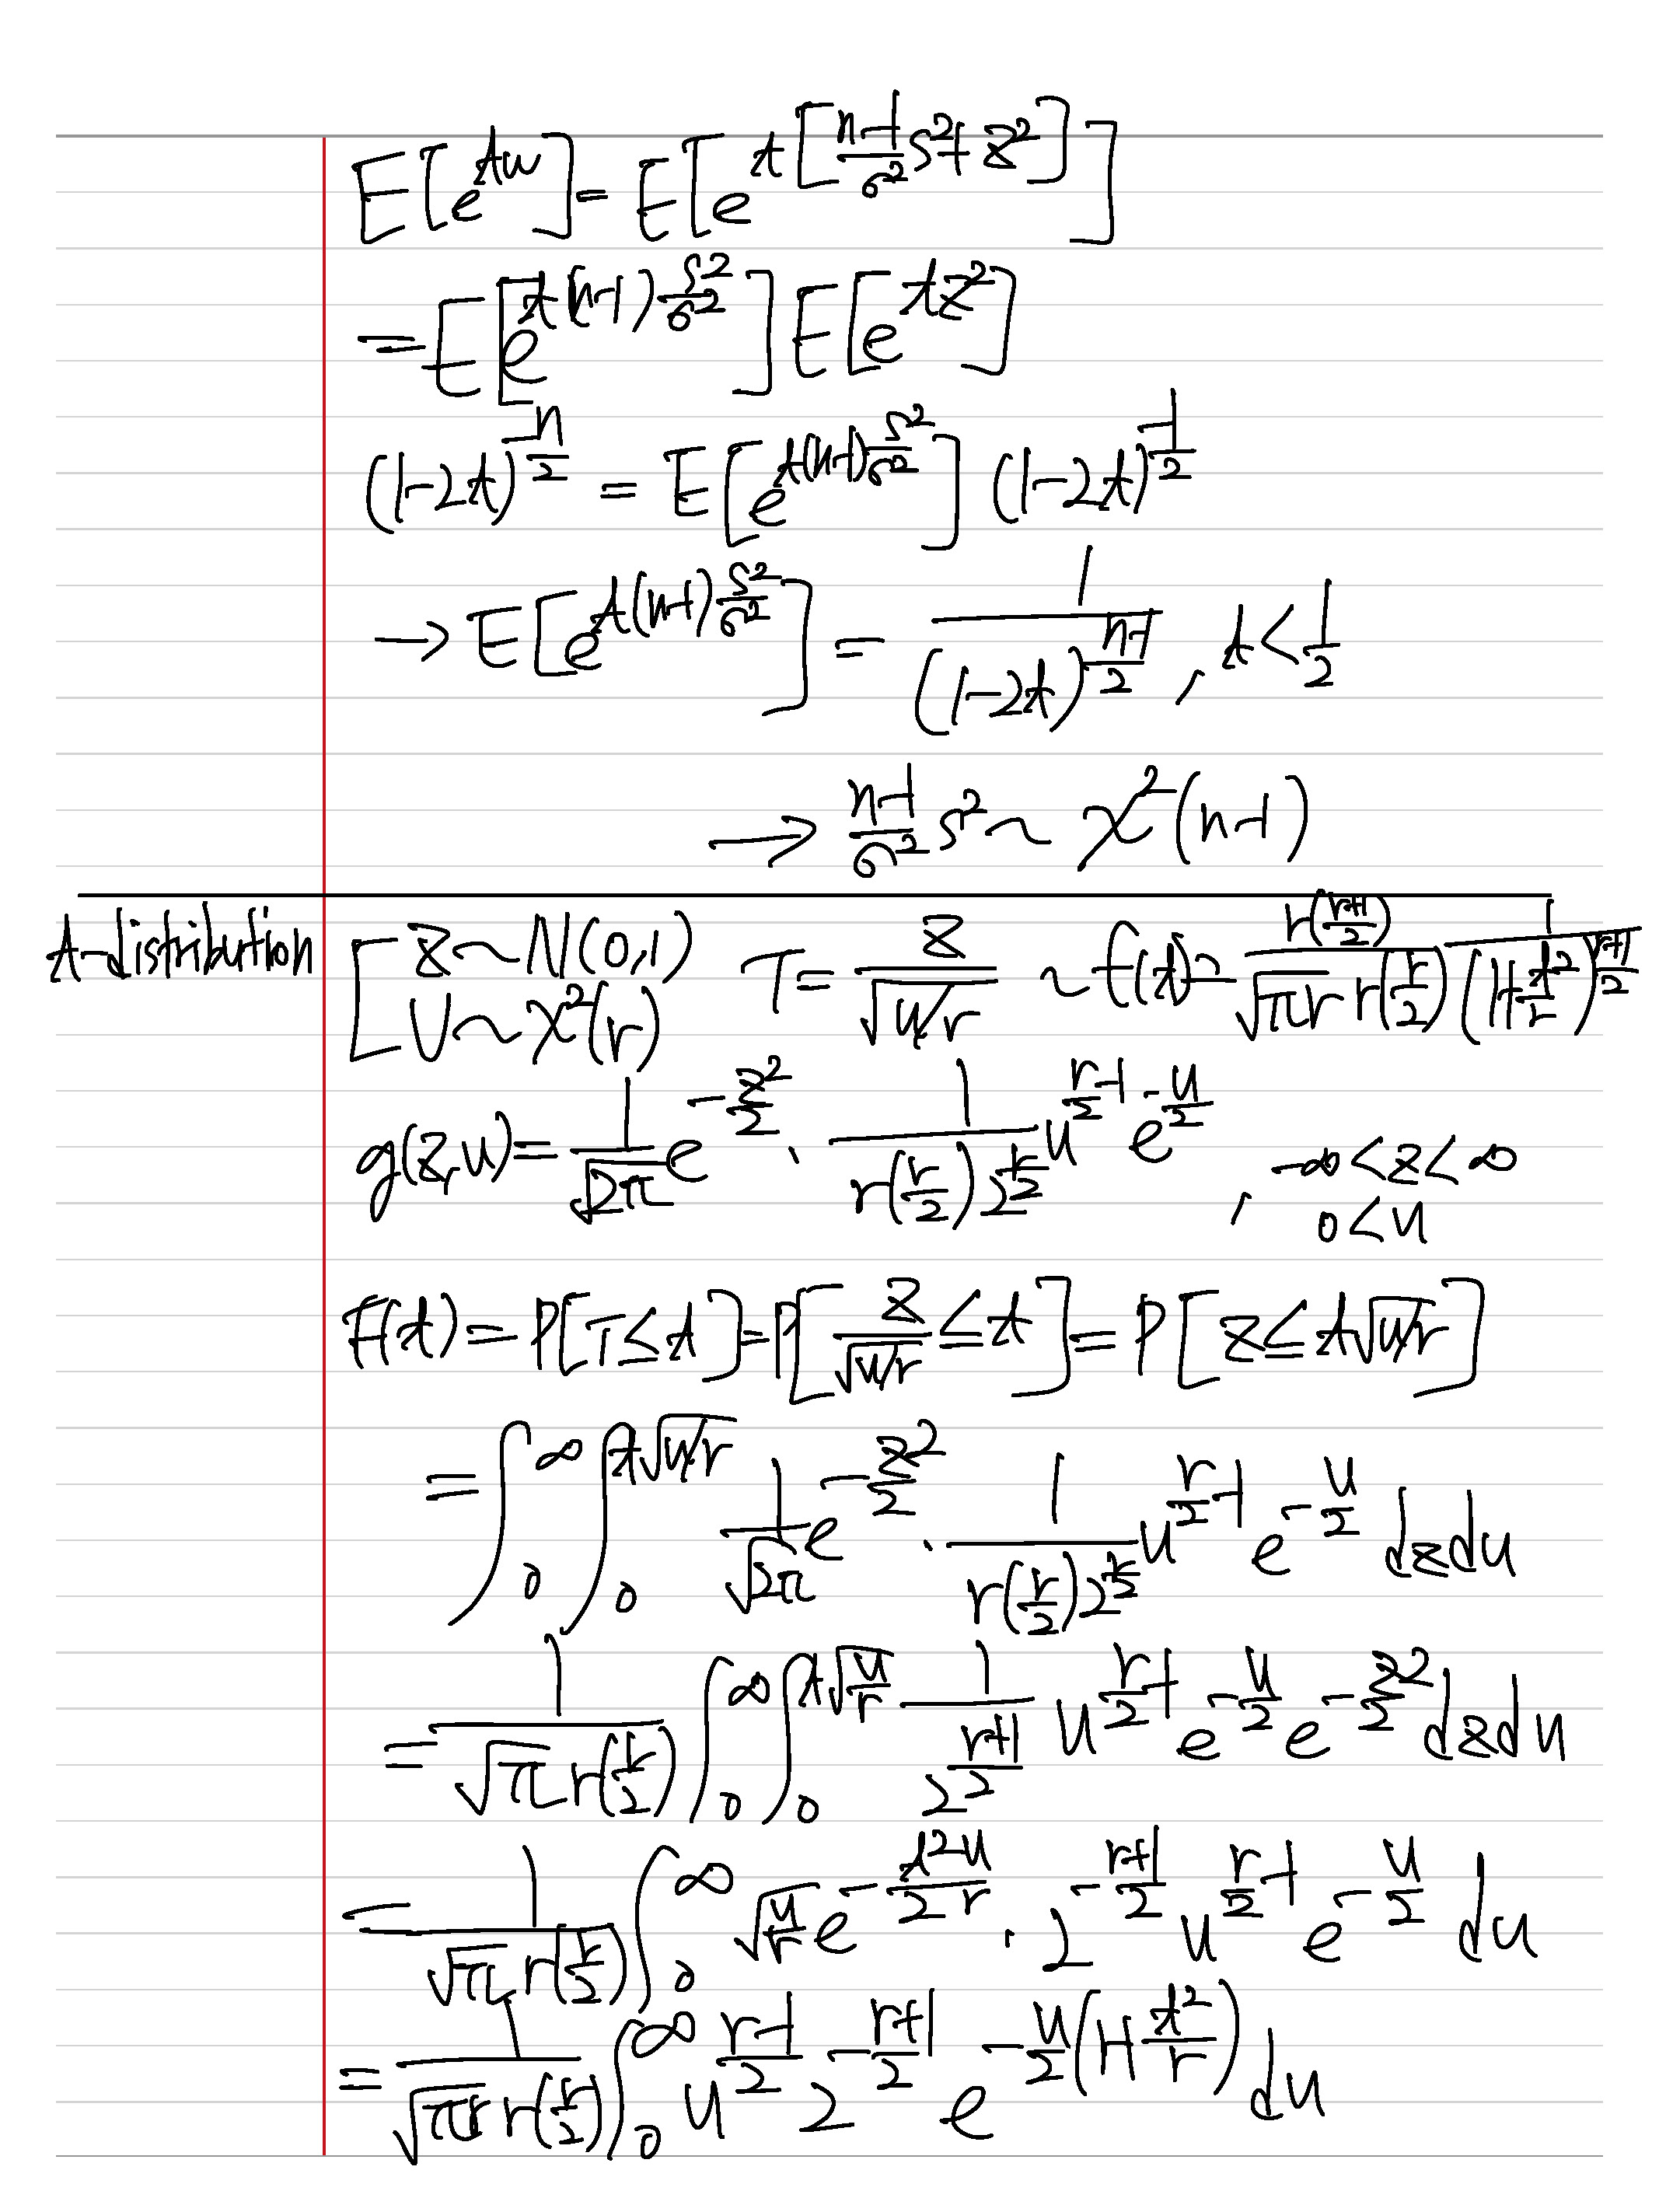 E[e^{tw}] = E[e^{t[\frac{n-1}{σ^2}S^2+Z^2]}]
= E[e^{t(n-1)\frac{S^2}{σ^2}}] E[e^{tZ^2}]
(1-2t)^{-\frac{n}{2}} = E[e^{t(n-1)\frac{S^2}{σ^2}}] (1-2t)^{-\frac{1}{2}}
→ E[e^{t(n-1)\frac{S^2}{σ^2}}] = \frac{1}{(1-2t)^{\frac{n-1}{2}}}, t < \frac{1}{2}
→ \frac{n-1}{σ^2} S^2 ~ χ^2(n-1)
t-distribution
[ Z ~ N(0,1) T = \frac{Z}{\sqrt{U/r}} ~ f(t) = \frac{Γ(\frac{r+1}{2})}{\sqrt{πr} Γ(\frac{r}{2})} \frac{1}{(1+\frac{t^2}{r})^{\frac{r+1}{2}}}
U ~ χ^2(r)
g(z,u) = \frac{1}{\sqrt{2π}} e^{-\frac{z^2}{2}} · \frac{1}{Γ(\frac{r}{2}) 2^{\frac{r}{2}}} u^{\frac{r}{2}-1} e^{-\frac{u}{2}}, -∞<z<∞
0<u
F(t) = P[T ≤ t] = P[\frac{Z}{\sqrt{U/r}} ≤ t] = P[Z ≤ t\sqrt{U/r}]
= ∫_0^∞ ∫_0^{t\sqrt{u/r}} \frac{1}{\sqrt{2π}} e^{-\frac{z^2}{2}} · \frac{1}{Γ(\frac{r}{2}) 2^{\frac{r}{2}}} u^{\frac{r}{2}-1} e^{-\frac{u}{2}} dz du
= \frac{1}{\sqrt{π} Γ(\frac{r}{2})} ∫_0^∞ ∫_0^{t\sqrt{\frac{u}{r}}} \frac{1}{2^{\frac{r+1}{2}}} u^{\frac{r}{2}-1} e^{-\frac{u}{2}} e^{-\frac{z^2}{2}} dz du
= \frac{1}{\sqrt{π} Γ(\frac{r}{2})} ∫_0^∞ \sqrt{\frac{u}{r}} e^{-\frac{t^2 u}{2r}} · 2^{-\frac{r+1}{2}} u^{\frac{r}{2}-1} e^{-\frac{u}{2}} du
= \frac{1}{\sqrt{πr} Γ(\frac{r}{2})} ∫_0^∞ u^{\frac{r-1}{2}} 2^{-\frac{r+1}{2}} e^{-\frac{u}{2}(1+\frac{t^2}{r})} du